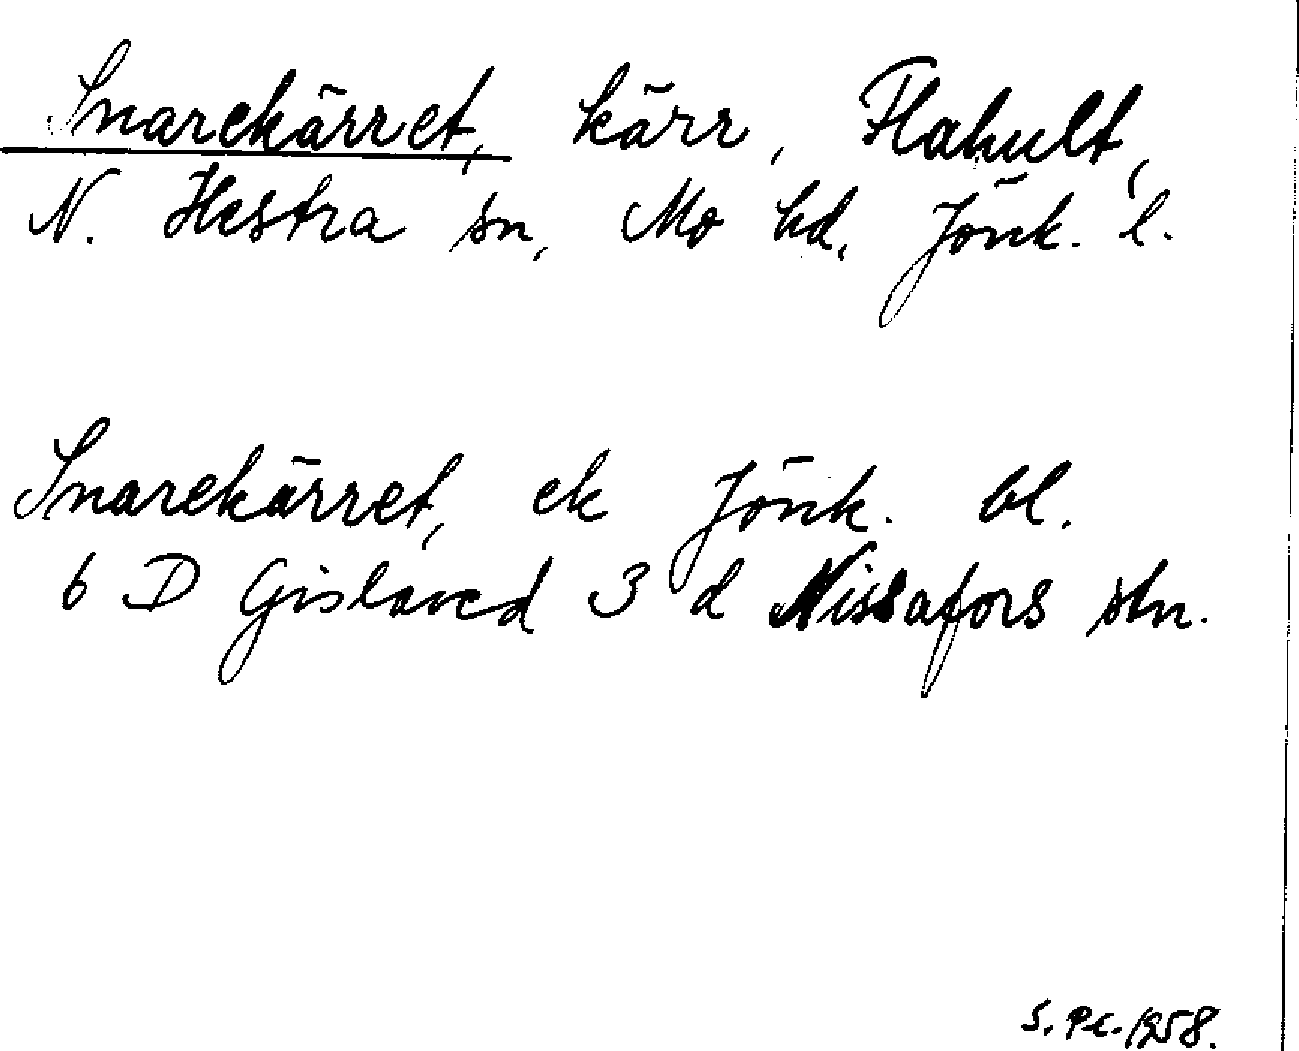 Snarekärret, kärr, Flahult,
N. Hestra sn, Mo hd, Jönk. l.
Snarekärret, ek Jönk. bl.
6 D Gislaved 3 d Nissafors stn.
S. Pe. 1958.